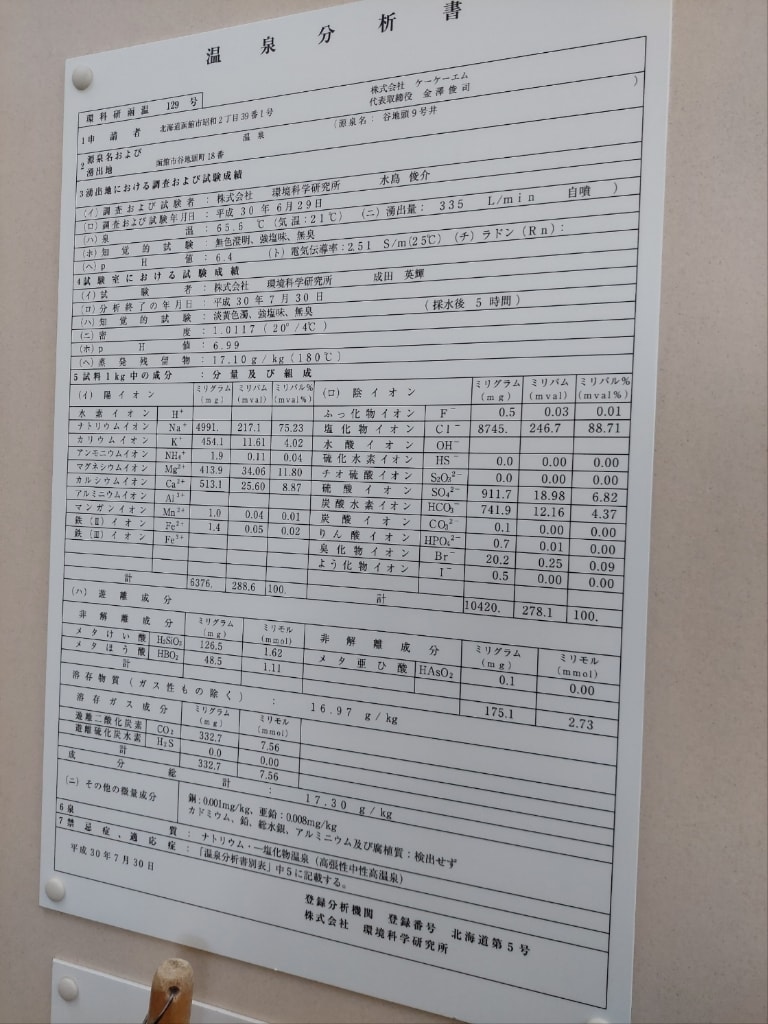 温泉分析書
環科研函温 129 号
1 申請者 北海道函館市昭和2丁目39番1号 株式会社 ケーケーエム
代表取締役 金澤俊司
2 源泉名および湧出地 温泉 (源泉名: 谷地頭9号井 )
函館市谷地頭町18番
3 湧出地における調査および試験成績
(イ)調査および試験者 : 株式会社 環境科学研究所 水島 俊介
(ロ)調査および試験年月日 : 平成 30 年 6月29日
(ハ)泉温 : 65.5 ℃ (気温:21℃) (ニ)湧出量: 335 L/min 自噴 )
(ホ)知覚的試験 : 無色澄明、強塩味、無臭
(ヘ)pH値 : 6.4 (ト)電気伝導率:2.51 S/m(25℃) (チ)ラドン(Rn):
4 試験室における試験成績
(イ)試験者 : 株式会社 環境科学研究所 成田 英輝
(ロ)分析終了の年月日 : 平成 30 年 7月 30 日
(ハ)知覚的試験 : 淡黄色濁、強塩味、無臭 (採水後 5 時間)
(ニ)密度 : 1.0117 (20°/4℃)
(ホ)pH値 : 6.99
(ヘ)蒸発残留物 : 17.10g/kg(180℃)
5 試料1kg中の成分 : 分量及び組成
(イ)陽イオン ミリグラム(mg) ミリバム(mval) ミリバル%(mval%) (ロ)陰イオン ミリグラム(mg) ミリバム(mval) ミリバル%(mval%)
水素イオン H⁺ ふっ化物イオン F⁻ 0.5 0.03 0.01
ナトリウムイオン Na⁺ 4991. 217.1 75.23 塩化物イオン Cl⁻ 8745. 246.7 88.71
カリウムイオン K⁺ 454.1 11.61 4.02 水酸イオン OH⁻
アンモニウムイオン NH₄⁺ 1.9 0.11 0.04 硫化水素イオン HS⁻ 0.0 0.00 0.00
マグネシウムイオン Mg²⁺ 413.9 34.06 11.80 チオ硫酸イオン S₂O₃²⁻ 0.0 0.00 0.00
カルシウムイオン Ca²⁺ 513.1 25.60 8.87 硫酸イオン SO₄²⁻ 911.7 18.98 6.82
アルミニウムイオン Al³⁺ 炭酸水素イオン HCO₃⁻ 741.9 12.16 4.37
マンガンイオン Mn²⁺ 1.0 0.04 0.01 炭酸イオン CO₃²⁻ 0.1 0.00 0.00
鉄(Ⅱ)イオン Fe²⁺ 1.4 0.05 0.02 りん酸イオン HPO₄²⁻ 0.7 0.01 0.00
鉄(Ⅲ)イオン Fe³⁺ 臭化物イオン Br⁻ 20.2 0.25 0.09
よう化物イオン I⁻ 0.5 0.00 0.00
計 6376. 288.6 100. 計 10420. 278.1 100.
(ハ)遊離成分
非解離成分 ミリグラム(mg) ミリモル(mmol) 非解離成分 ミリグラム(mg) ミリモル(mmol)
メタけい酸 H₂SiO₃ 126.5 1.62 メタ亜ひ酸 HAsO₂ 0.1 0.00
メタほう酸 HBO₂ 48.5 1.11
計 175.1 2.73
溶存物質(ガス性もの除く) : 16.97 g/kg
溶存ガス成分 ミリグラム(mg) ミリモル(mmol)
遊離二酸化炭素 CO₂ 332.7 7.56
遊離硫化炭水素 H₂S 0.0 0.00
計 332.7 7.56
成分総計 : 17.30 g/kg
(ニ)その他の微量成分 銅:0.001mg/kg、亜鉛:0.008mg/kg
カドミウム、鉛、総水銀、アルミニウム及び腐植質;検出せず
6 泉質 : ナトリウム・―塩化物温泉(高張性中性高温泉)
7 禁忌症、適応症 : 「温泉分析書別表」中5に記載する。
平成30年7月30日
登録分析機関 登録番号 北海道第5号
株式会社 環境科学研究所